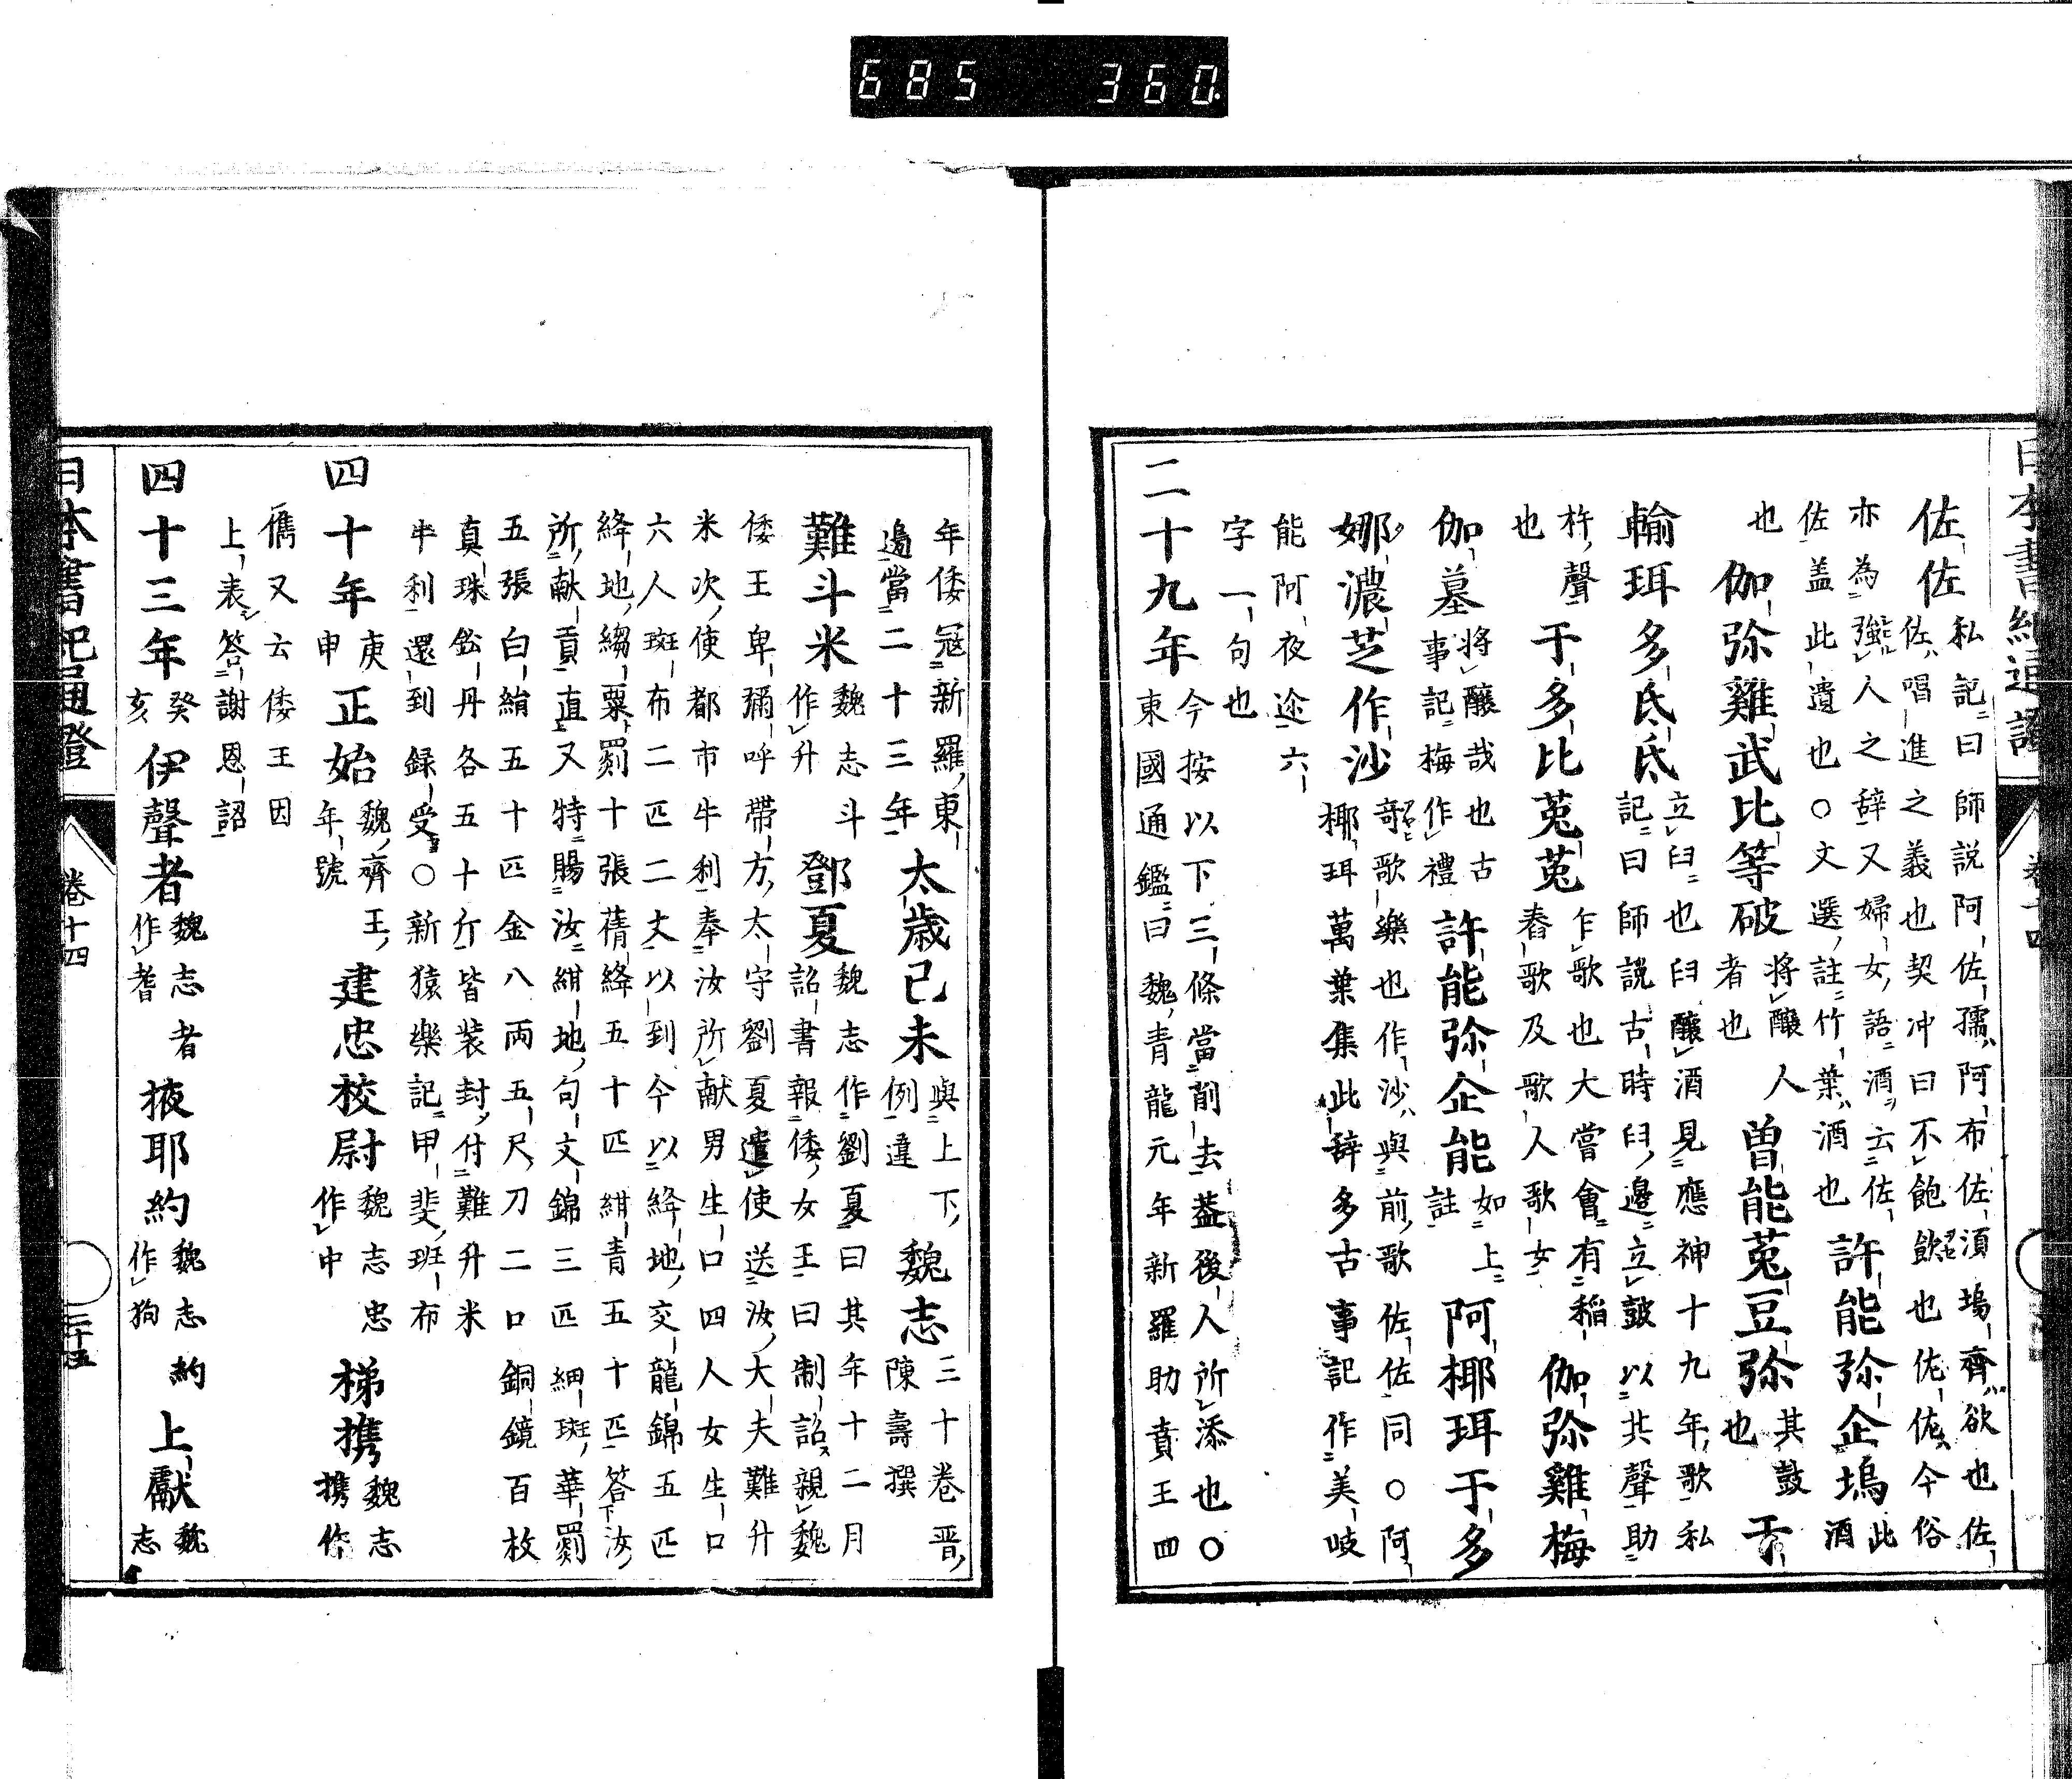 佐佐私記曰師説阿佐孺阿布佐湏塢齊欲也佐
佐唱進之義也契冲曰不飽飲也佐佐今俗
亦為強人之辞又婦女語酒云佐
佐盖此遺也○文選註竹葉酒也許能弥企塢此酒
也伽弥雞武比等破将醸人者也曽能菟豆弥其鼓也于
輸珥多氐氐立臼也臼醸酒見應神十九年歌私
記曰師説古時臼邊立皷以共聲助
杵聲也于多比菟菟乍歌也大嘗會有稲
舂歌及歌人歌女伽弥雞梅
伽墓将醸哉也古事記梅作禮許能弥企能如上註阿椰珥于多
娜濃芝作沙奇歌樂也作沙與前歌佐佐同○阿
椰珥萬葉集此辞多古事記作美岐
能阿夜迩六
字一句也
二十九年今按以下三條當削去葢後人所添也○
東國通鑑曰魏青龍元年新羅助賁王四
年倭冦新羅東
邉當二十三年太歳己未與上下例違魏志三十卷晋陳壽撰
難斗米魏志斗作升鄧夏魏志作劉夏曰其年十二月
詔書報倭女王曰制詔親魏
倭王卑彌呼帶方太守劉夏遣使送汝大夫難升
米次使都市牛利奉汝所献男生口四人女生口
六人斑布二匹二丈以到今以絳地交龍錦五匹
絳地縐粟罽十張蒨絳五十匹紺青五十匹答汝
所献貢直又特賜汝紺地句文錦三匹細斑華罽
五張白絹五十匹金八両五尺刀二口銅鏡百枚
真珠鈆丹各五十斤皆装封付難升米
牛利還到録受○新猿樂記甲斐班布
四十年庚申正始魏齊王年號建忠校尉魏志忠作中梯携魏志携作
儁又云倭王因
上表答謝恩詔
四十三年癸亥伊聲者魏志者作耆掖耶約魏志約作狗上獻魏志
日本書紀通證 卷十四 三十五